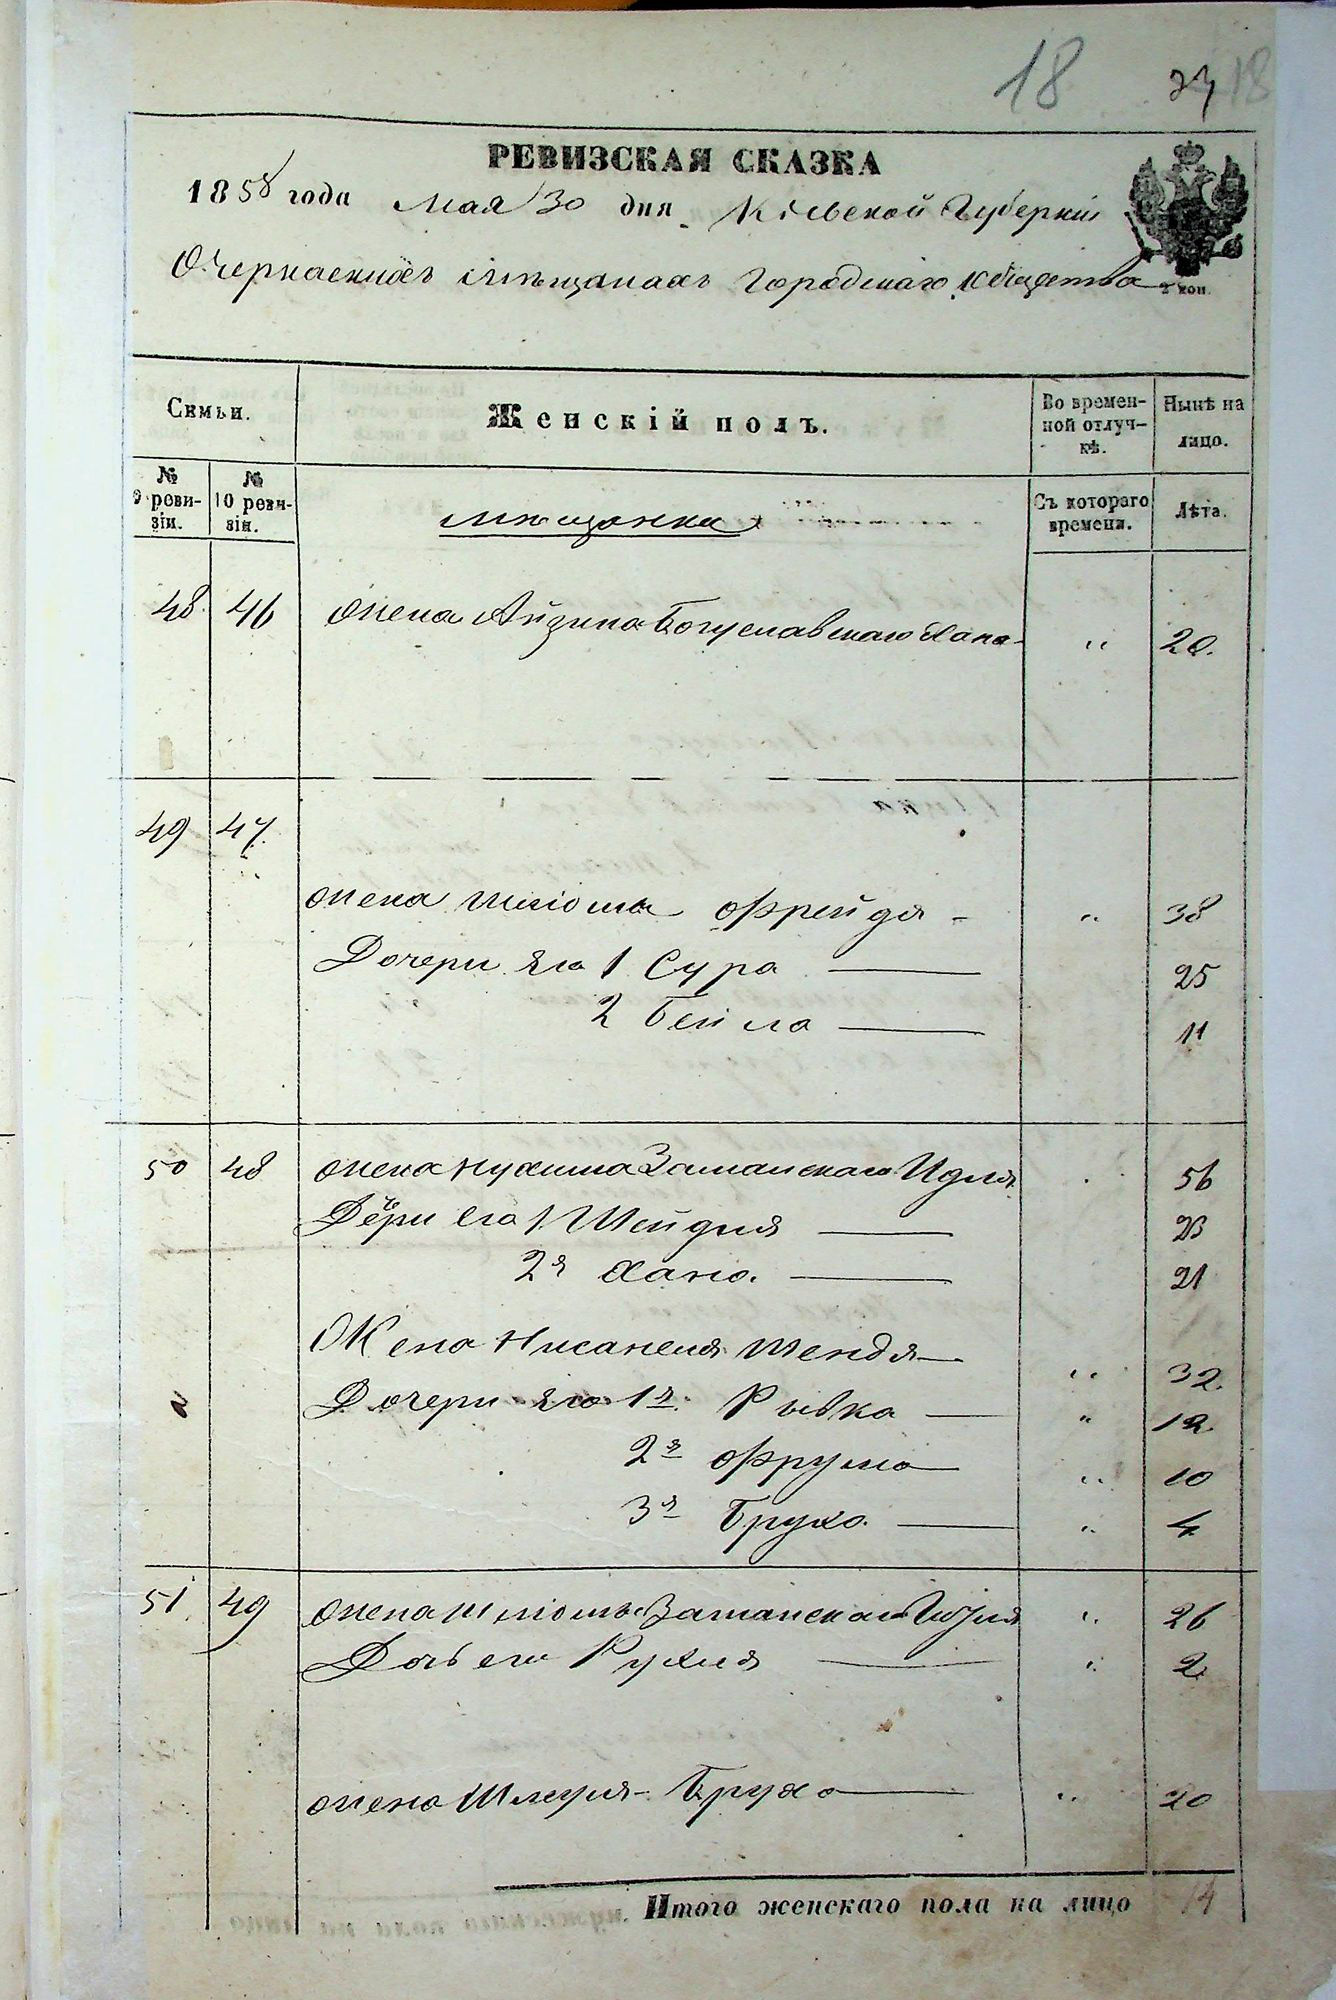 18 24 18
РЕВИЗСКАЯ СКАЗКА
1858 года Мая 30 дня Кіевской Губерніи
О Черкаскихъ Мѣщанахъ Городскаго Общества
2 коп.
Семьи. Женскій полъ. Во времен- Нынѣ на
ной отлуч- лицо.
кѣ.
№ №
9 реви- 10 реви- Съ котораго Лѣта.
зіи. зіи. времени.
Мѣщанки
48 46 Жена Айзика Богуславскаго Хана „ 20.
49 47.
Жена Шліома Фрейда „ 38
Дочери его 1 Сура 25
2 Бейла 11
50 48 Жена Нухима Заславскаго Идля 56
Дочери Его 1. Шейдля 23
2я Хана. 21
Жена Нисанеля Шендля „ 32.
Дочери его 1я Рывка „ 12.
2я Фрума „ 10
3я Бруха. „ 4
51 49 Жена Шліомы „ 26
Дочь его Рухля „ 2
Жена Шмуля Бруха „ 20
Итого женскаго пола на лицо 14